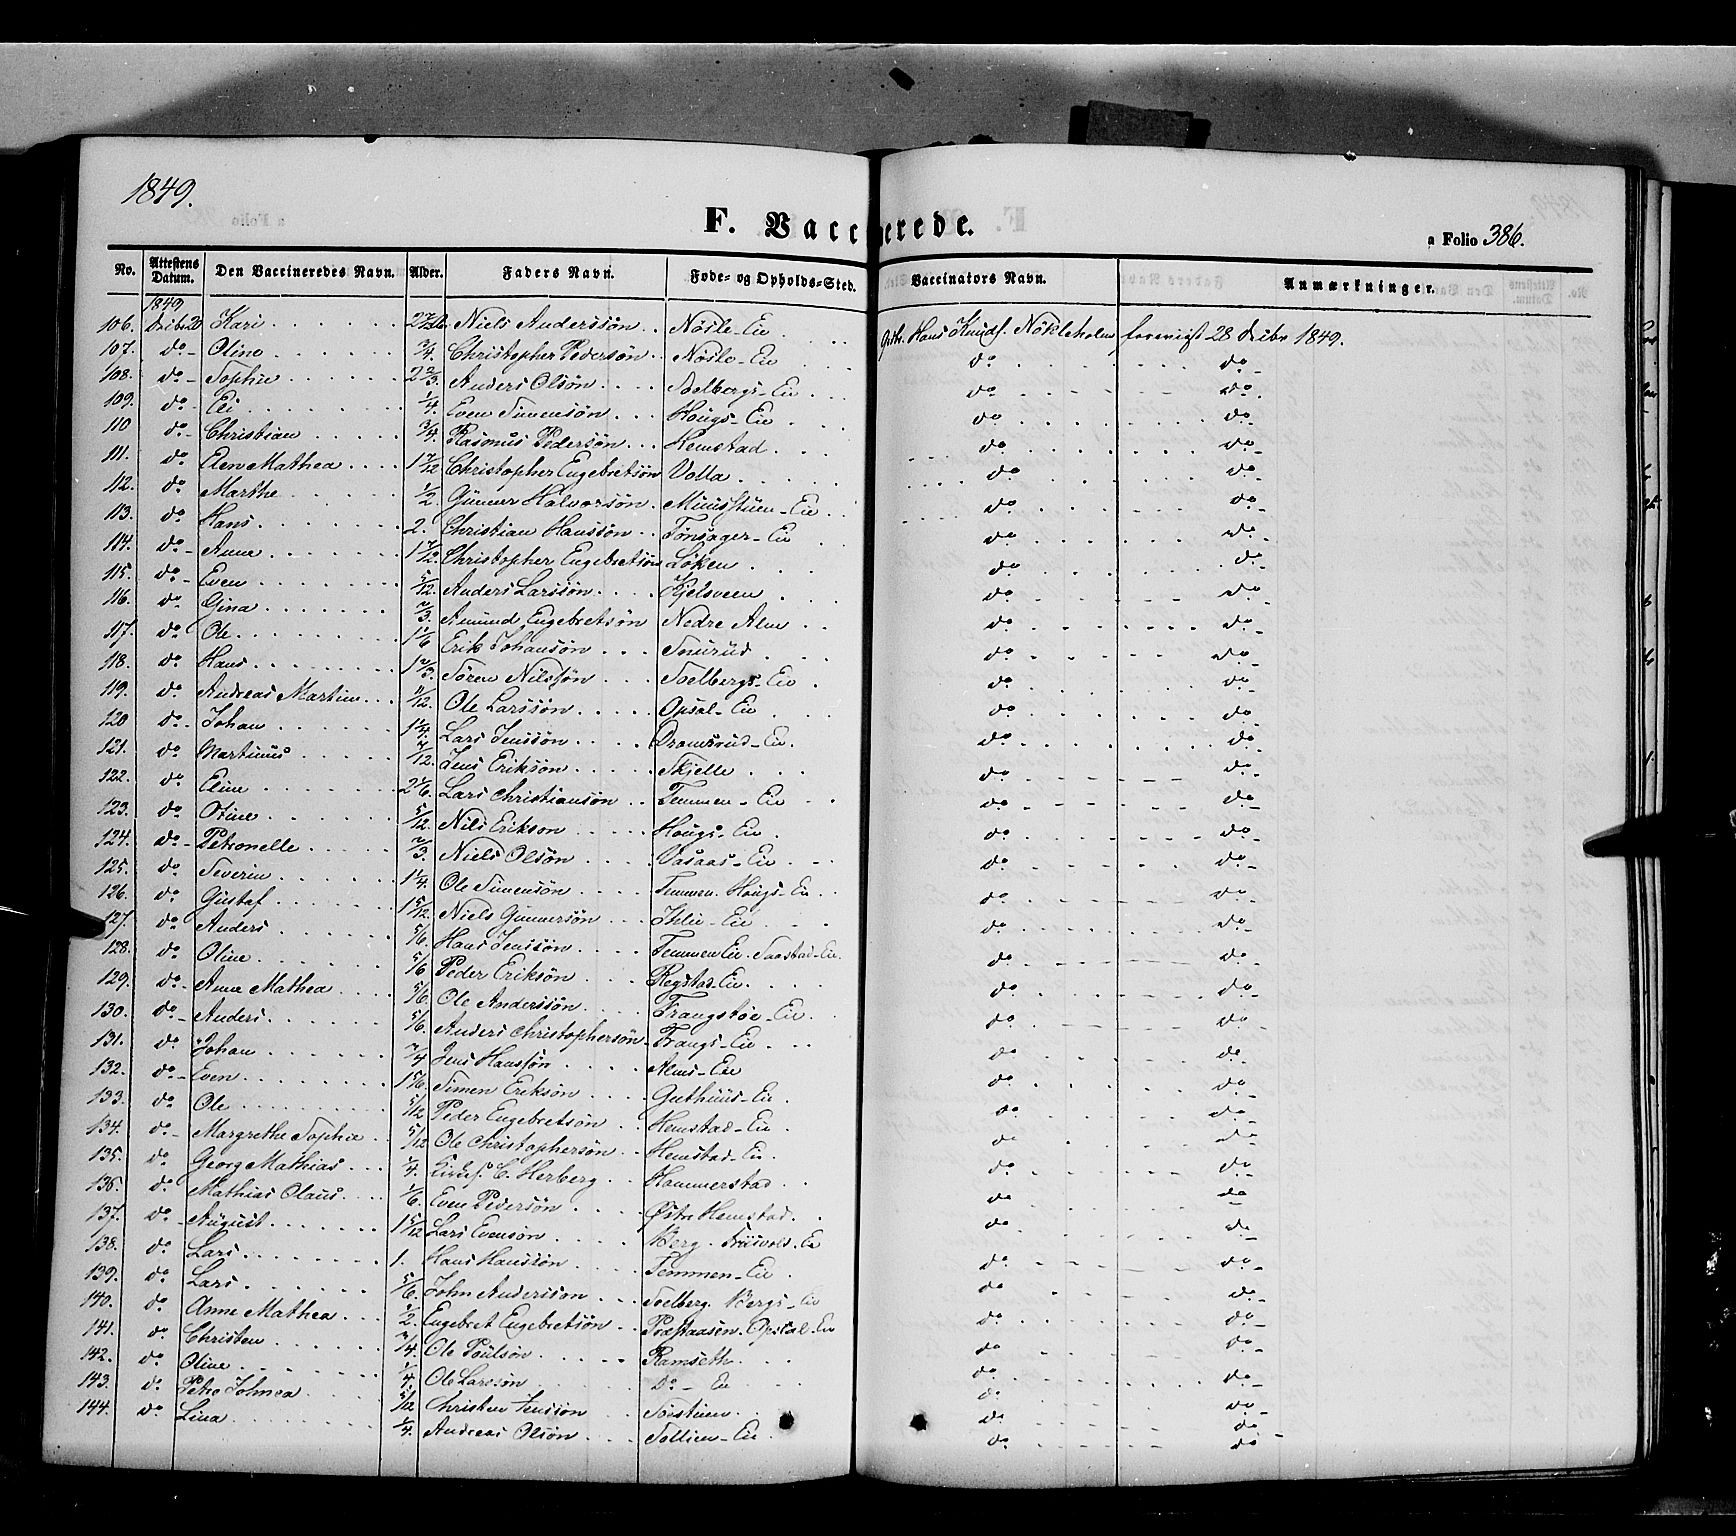 1849.
F. Vaccinerede.
a Folio 386.
No. Attestens Datum. Den Vaccineredes Navn. Alder. Faders Navn. Føde- og Opholds-Sted. Vaccinators Navn. Anmærkninger.
1849
106. Decbr 20 Kari Niels Anderssøn Nøsle-Eie Hans Knuds. Nökleholm 28 Decbr 1849.
107. do Oline 3/4 Christopher Pedersøn Nøsle-Eie do do
108. do Sophie 2 2/3 Anders Olsøn Soelbergs-Eie do do
109. do Eli 1/4 Even Simensøn Hougs-Eie do do
110 do Christian 3/4 Rasmus Pedersøn Hemstad do do
111. do Elen Mathea 1 7/12 Christopher Engebretsøn Volla do do
112. do Marthe 1/2 Gunner Halvorsøn Muusstuen-Eie do do
113. do Hans 2. Christian Hanssøn Tønsager-Eie do do
114. do Anne 1 7/12 Christopher Engebretsøn Løken do do
115. do Even 5/12 Anders Larssøn Kjelsveen do do
116. do Gina 2/3 Amund Engebretsøn Nedre Alm do do
117. do Ole 1 1/6 Erik Johansøn do do
118. do Hans 1 2/3 Søren Nilssøn Soelbergs-Eie do do
119. do Andreas Martin /12 Ole Larssøn Opsal-Eie do do
120 do Johan 1 1/4 Lars Jenssøn Dramsrud-Eie do do
121. do Martinus 7/12 Jens Eriksøn Skjelle do do
122. do Eline 2 1/6 Lars Christiansøn Temmen-Eie do do
123. do Otine 5/12 Nils Erikson Hougs-Eie do do
124. do Petronelle 2/3 Niels Olsøn Vasaas-Eie do do
125. do Severin 1 1/4 Ole Simensøn Temmen. Hougs-Eie do do
126. do Gustaf 1 5/12 Niels Gunnersøn Ihle-Eie do do
127. do Anders 5/6 Hans Jenssøn Temmen Eie. Saastad-Eie do do
128. do Oline 5/6 Peder Eriksøn Regstad-Eie do do
129. do Anne Mathea 5/6 Ole Anderssøn Frangstøe-Eie do do
130. do Anders 5/6 Anders Christophersøn Frangs-Eie do do
131. do Johan 3/4 Jens Hanssøn Alms-Eie do do
132. do Even 1 5/6 Simen Eriksøn Guthuus-Eie do do
133. do Ole 5/12 Peder Engebretsøn Hemstad-Eie do do
134. do Margrethe Sophie 5/12 Ole Christophersøn Hemstad-Eie do do
135. do Georg Mathias 1/4 C. Herberg Hammerstad do do
136. do Mathias Olaus 1/6 Even Pedersøn Østre Hemstad do do
137. do August 1 5/12 Lars Evensøn Berg. do do
138. do Lars 1. Hans Hanssøn Temmen-Eie do do
139. do Lars 5/6 John Anderssøn Soelberg. Bergs-Eie do do
140. do Anne Mathea 1/2 Engebret Engebretsøn Opsal-Eie do do
141. do Christen 3/4 Ole Poulsøn Ramseth do do
142. do Oline 1/4 Ole Larssøn Do-Eie do do
143. do Petra Johnea 5/12 Christen Jenssøn do do
144. do Lina 1/4 Andreas Olsøn Sollien-Eie do do